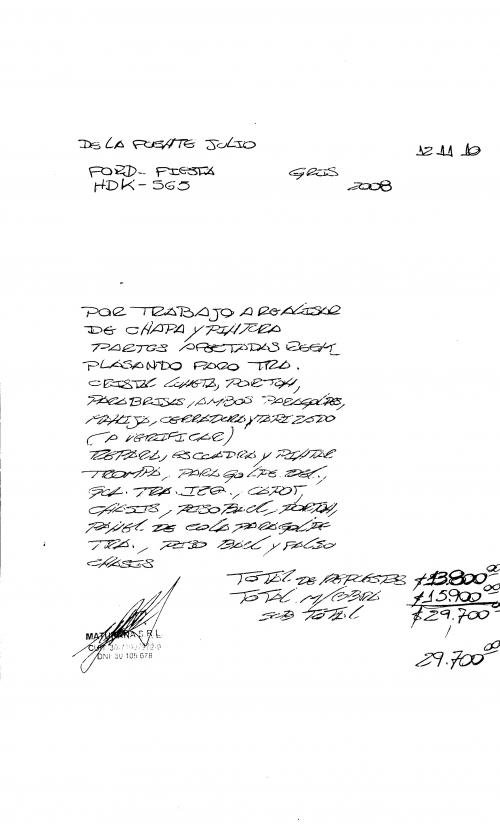 DE LA FUENTE JULIO
12 11 10
FORD - FIESTA GRIS
HDK - 565 2008
POR TRABAJO A REALISAR
DE CHAPA Y PINTURA
PARTES AFECTADAS REEM
PLASANDO FARO TRA.
CRISTAL LUNETA, PORTON,
PARABRISAS, AMBOS PARAGOLPES,
MANIJA, CERRADURA Y TAPIZADO
(A VERIFICAR)
REPARA, ESCUADRA Y PINTAR
TROMPA, PARAGOLPE DEL.,
GUA. TRA. IZQ., CAPOT,
CHASIS, PISO BAUL, PORTON,
PANEL DE COLA PARAGOLPE
TRA., PISO BAUL Y FALSO
CHASIS
TOTAL DE REPUESTOS $13.800.00
TOTAL M/OBRA $15.900.00
SUB TOTAL $29.700.00
MATURANA S.R.L.
DNI 30 105 678
29.700.00